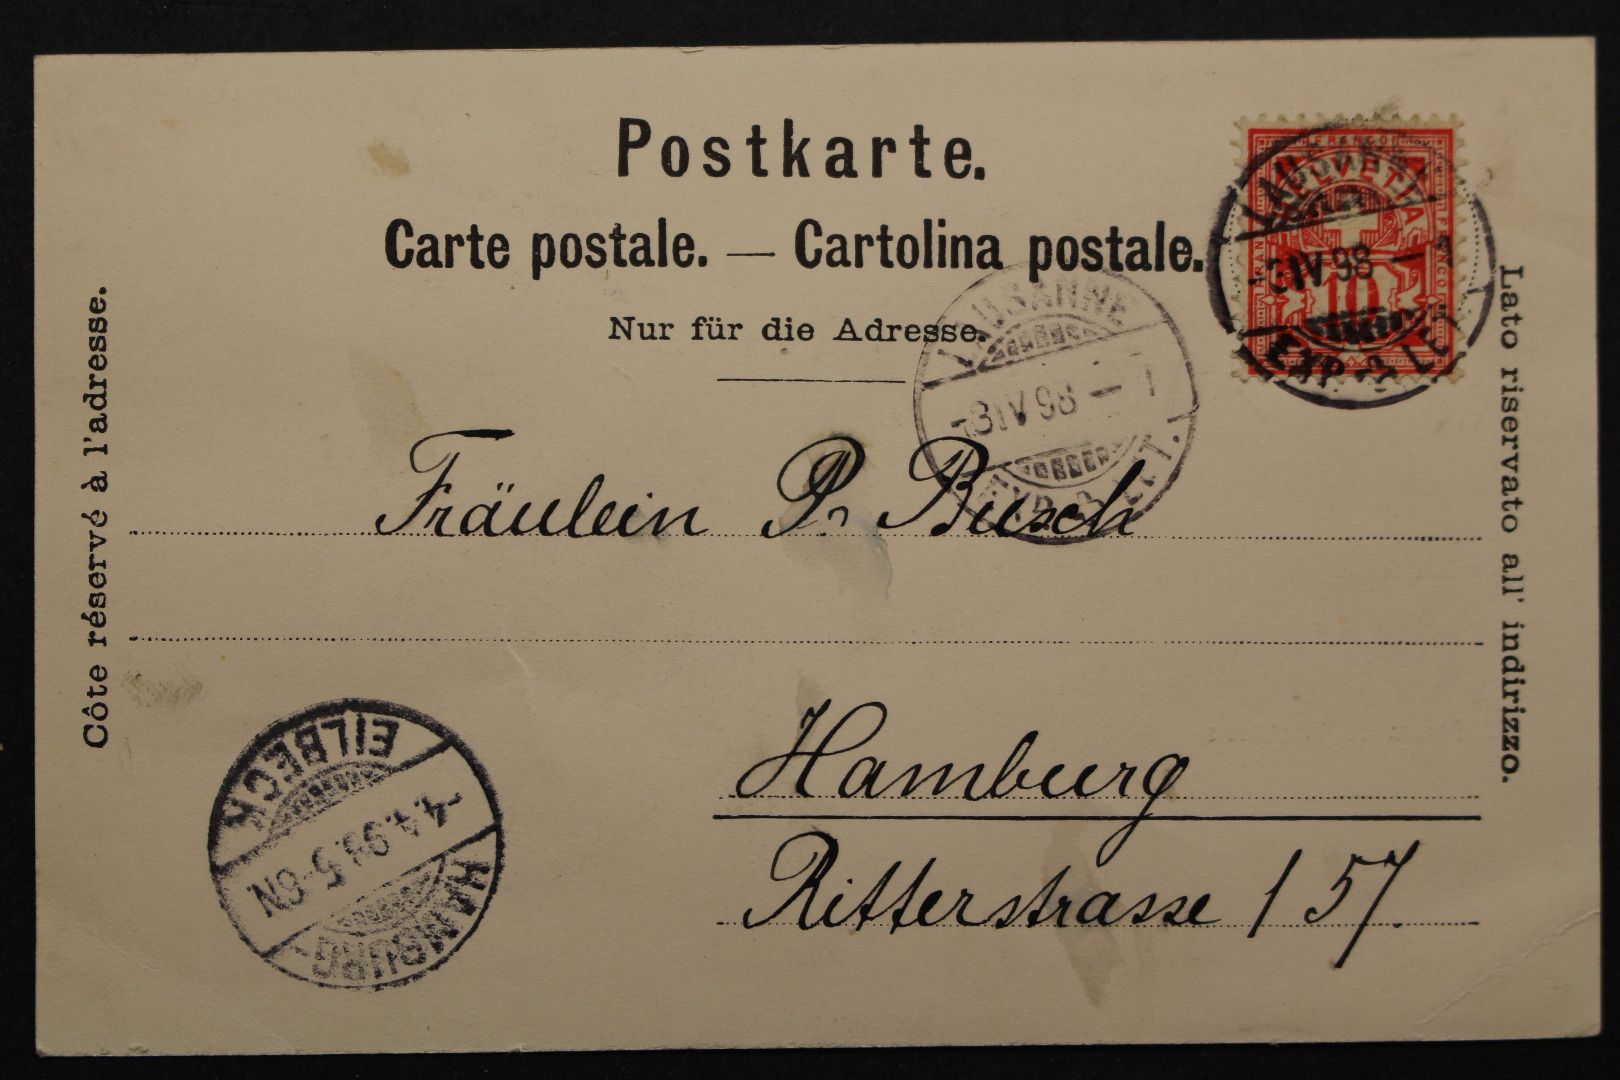 Postkarte.
Carte postale. — Cartolina postale.
Nur für die Adresse.
Côte réservé à l'adresse.
Lato riservato all' indirizzo.
HELVETIA
10
LAUSANNE
IV 98
EXP. LET.
LAUSANNE
-3 IV 98 — 7
EXP. LET.
Fräulein P. Busch
Hamburg
Ritterstrasse 157.
HAMBURG
-4.4.98.5-6N.
EILBECK